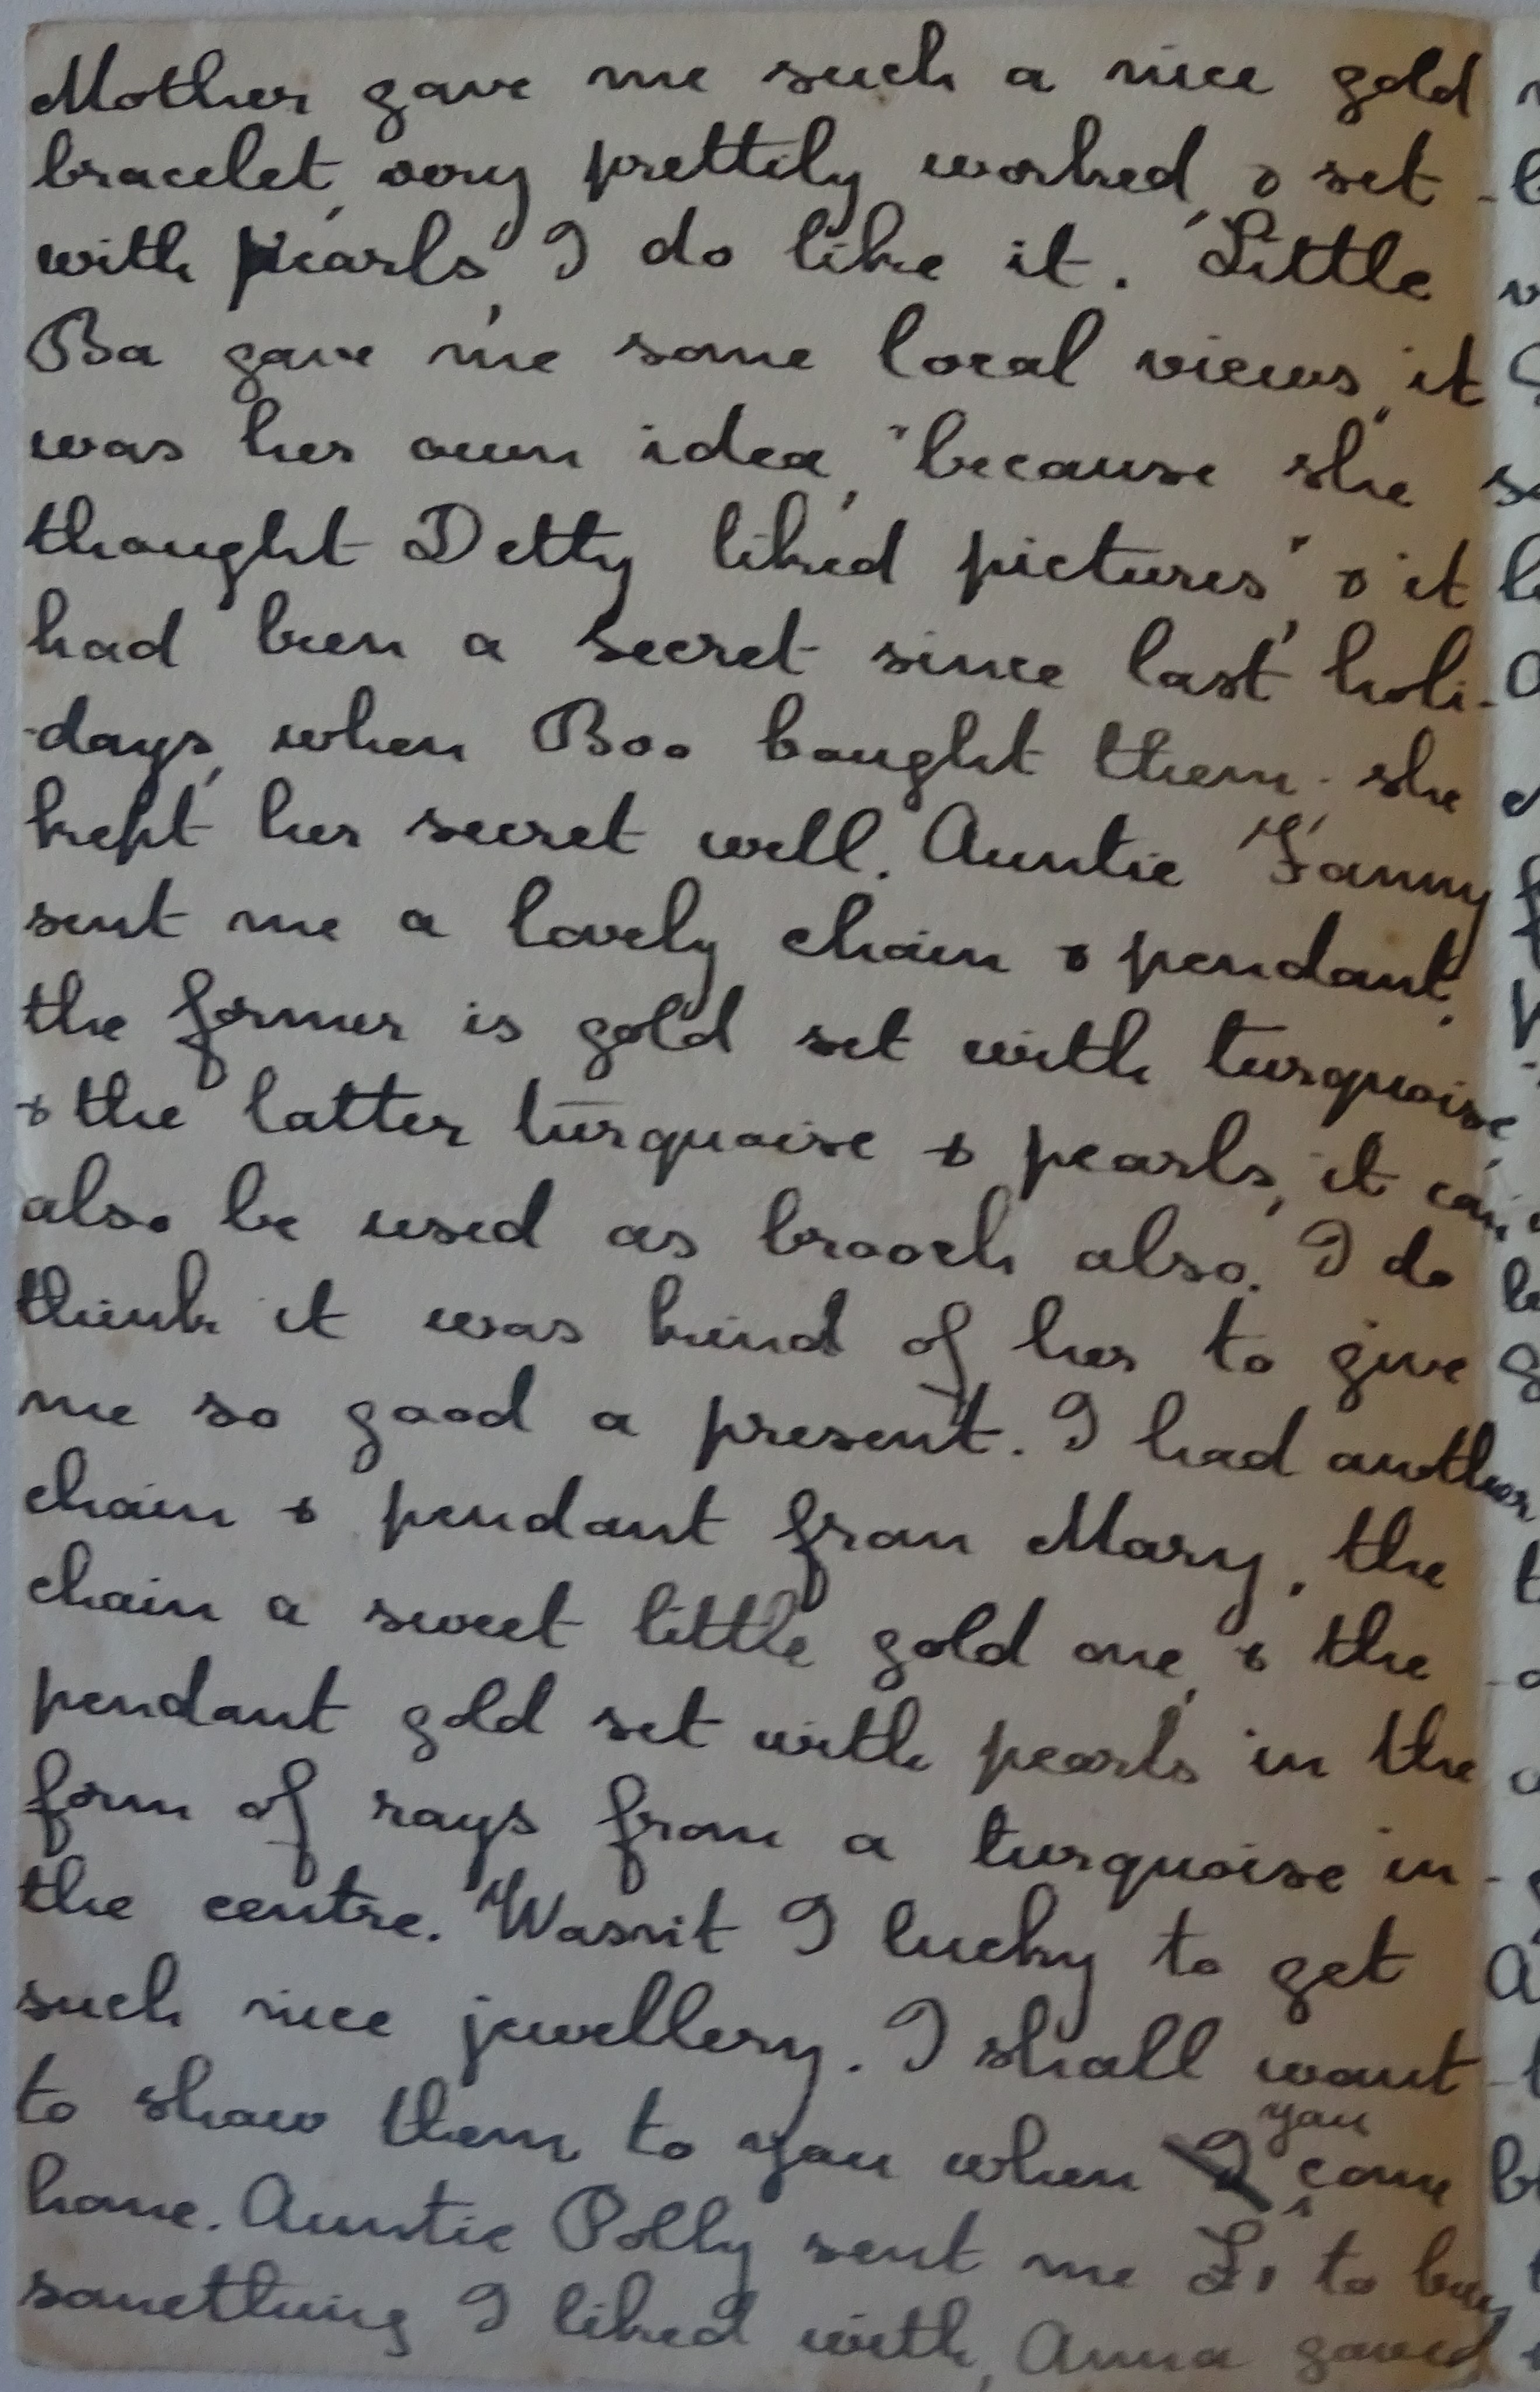 Mother gave me such a nice gold
bracelet, very prettily worked, & set
with pearls, I do like it. Little
Ba gave me some local views, it
was her own idea, "because she
thought Detty liked pictures", & it
had been a secret since last holi-
-days, when Boo bought them. she
kept her secret well. Auntie Fanny
sent me a lovely chain & pendant,
the former is gold set with turquoise
& the latter turquoise & pearls, it can
also be used as brooch also. I do
think it was kind of her to give
me so good a present. I had another
chain & pendant from Mary, the
chain a sweet little gold one, & the
pendant gold set with pearls in the
form of rays from a turquoise in
the centre. Wasn't I lucky to get
such nice jewellery. I shall want
to show them to you when I you come
home. Auntie Polly sent me £1 to buy
something I liked with, Anna gave